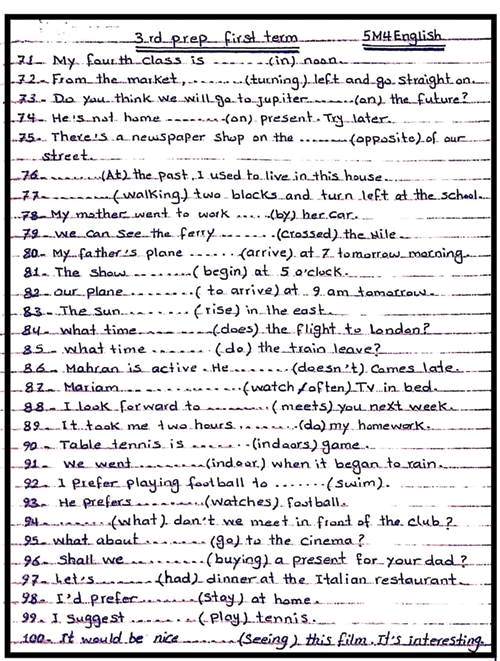 3.rd prep first term 5M4English
71- My fourth class is ....... (in) noon.
72- From the market, ....... (turning) left and go straight on.
73- Do you think we will go to Jupiter ...... (on) the future?
74- He's not home ....... (on) present. Try later.
75- There's a newspaper shop on the ....... (opposite) of our
street.
76- ....... (At) the past, I used to live in this house.
77- ....... (walking) two blocks and turn left at the school.
78- My mother went to work ..... (by) her car.
79- We can see the ferry ....... (crossed) the Nile.
80- My father's plane ...... (arrive) at 7 tomorrow morning.
81- The show ........ (begin) at 5 o'clock.
82- Our plane ........ (to arrive) at 9 am tomorrow.
83- The sun ........ (rise) in the east.
84- What time ........ (does) the flight to London?
85- What time ....... (do) the train leave?
86- Mahran is active. He ....... (doesn't) comes late.
87- Mariam ............... (watch / often) TV in bed.
88- I look forward to ........ (meets) you next week.
89- It took me two hours ....... (do) my homework.
90- Table tennis is ....... (indoors) game.
91- We went ........ (indoor) when it began to rain.
92- I prefer playing football to ....... (swim).
93- He prefers ....... (watches) football.
94- ....... (what) don't we meet in front of the club?
95- What about ....... (go) to the cinema?
96- Shall we ........ (buying) a present for your dad?
97- Let's ....... (had) dinner at the Italian restaurant.
98- I'd prefer ...... (stay) at home.
99- I suggest ........ (play) tennis.
100- It would be nice ....... (seeing) this film. It's interesting.